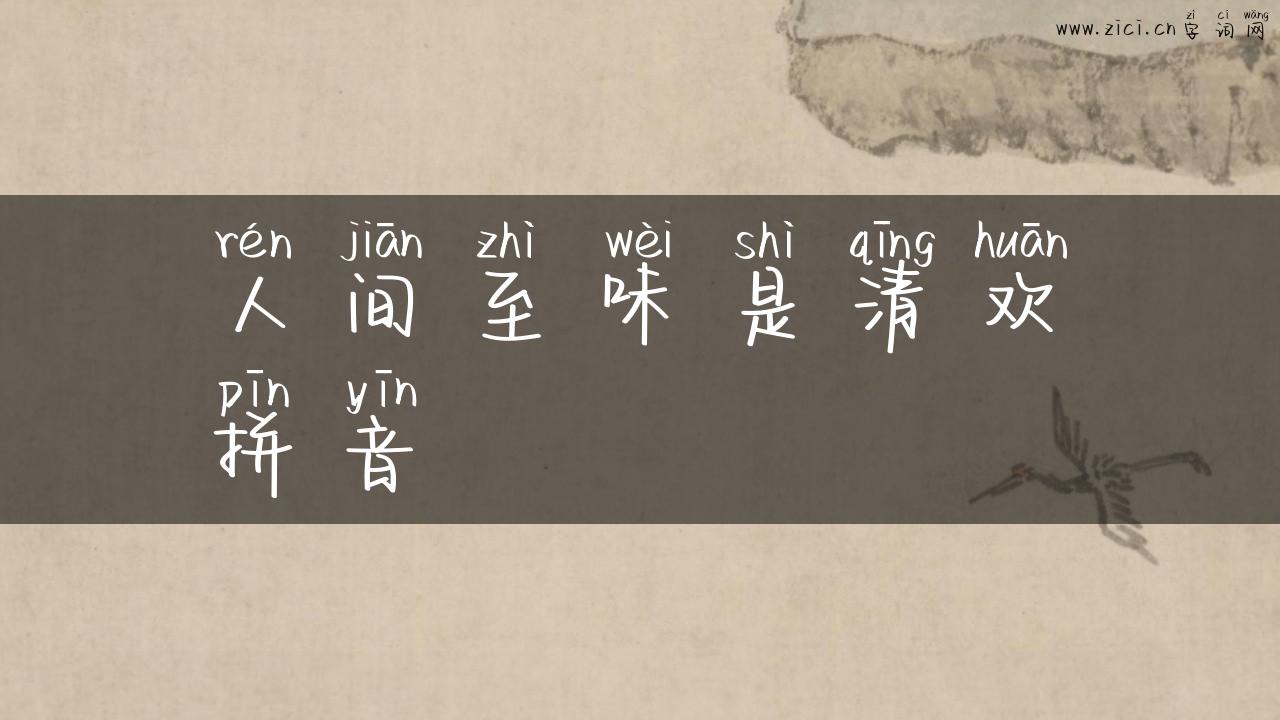 zì cí wǎng
www.zici.cn 字词网
rén jiān zhì wèi shì qīng huān
人间至味是清欢
pīn yīn
拼音